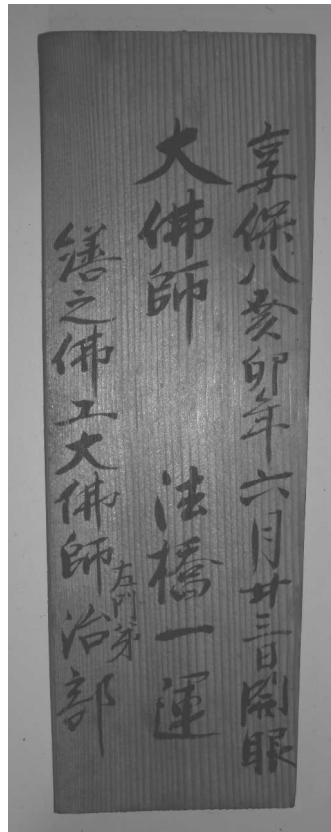 享保八癸卯年六月廿三日開眼
大佛師 法橋一運
繕之佛工大佛師治部
左門弟